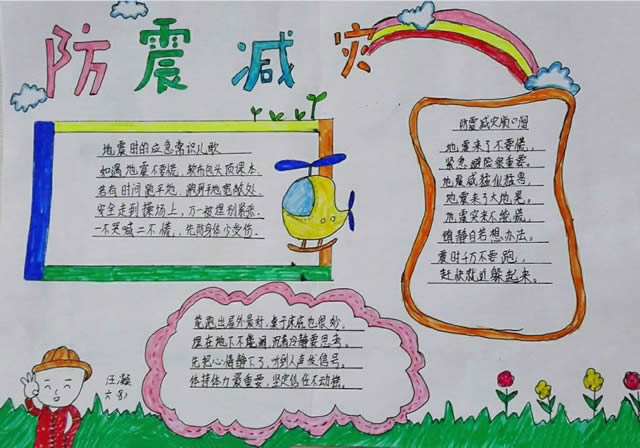 防震减灾
地震时的应急常识儿歌
如遇地震不要慌,软布包头顶课本.
若有时间跑平地,跑到平地宽敞处.
安全走到操场上,万一被埋别紧张.
一不哭喊二不慌,先防身体少受伤.
防震减灾顺口溜
地震来了不要慌,
紧急避险很重要。
地震威猛似猛兽,
地震来了大地晃。
地震突来不能慌,
镇静自若想办法。
震时千万不要跑,
赶快就近躲起来。
能跑出屋外最好,桌子床底也很妙.
埋在地下不能闹,沉着冷静要思考.
先把心情静下了,听到人声发信号.
保持体力最重要,坚定信任不动摇.
汪凝